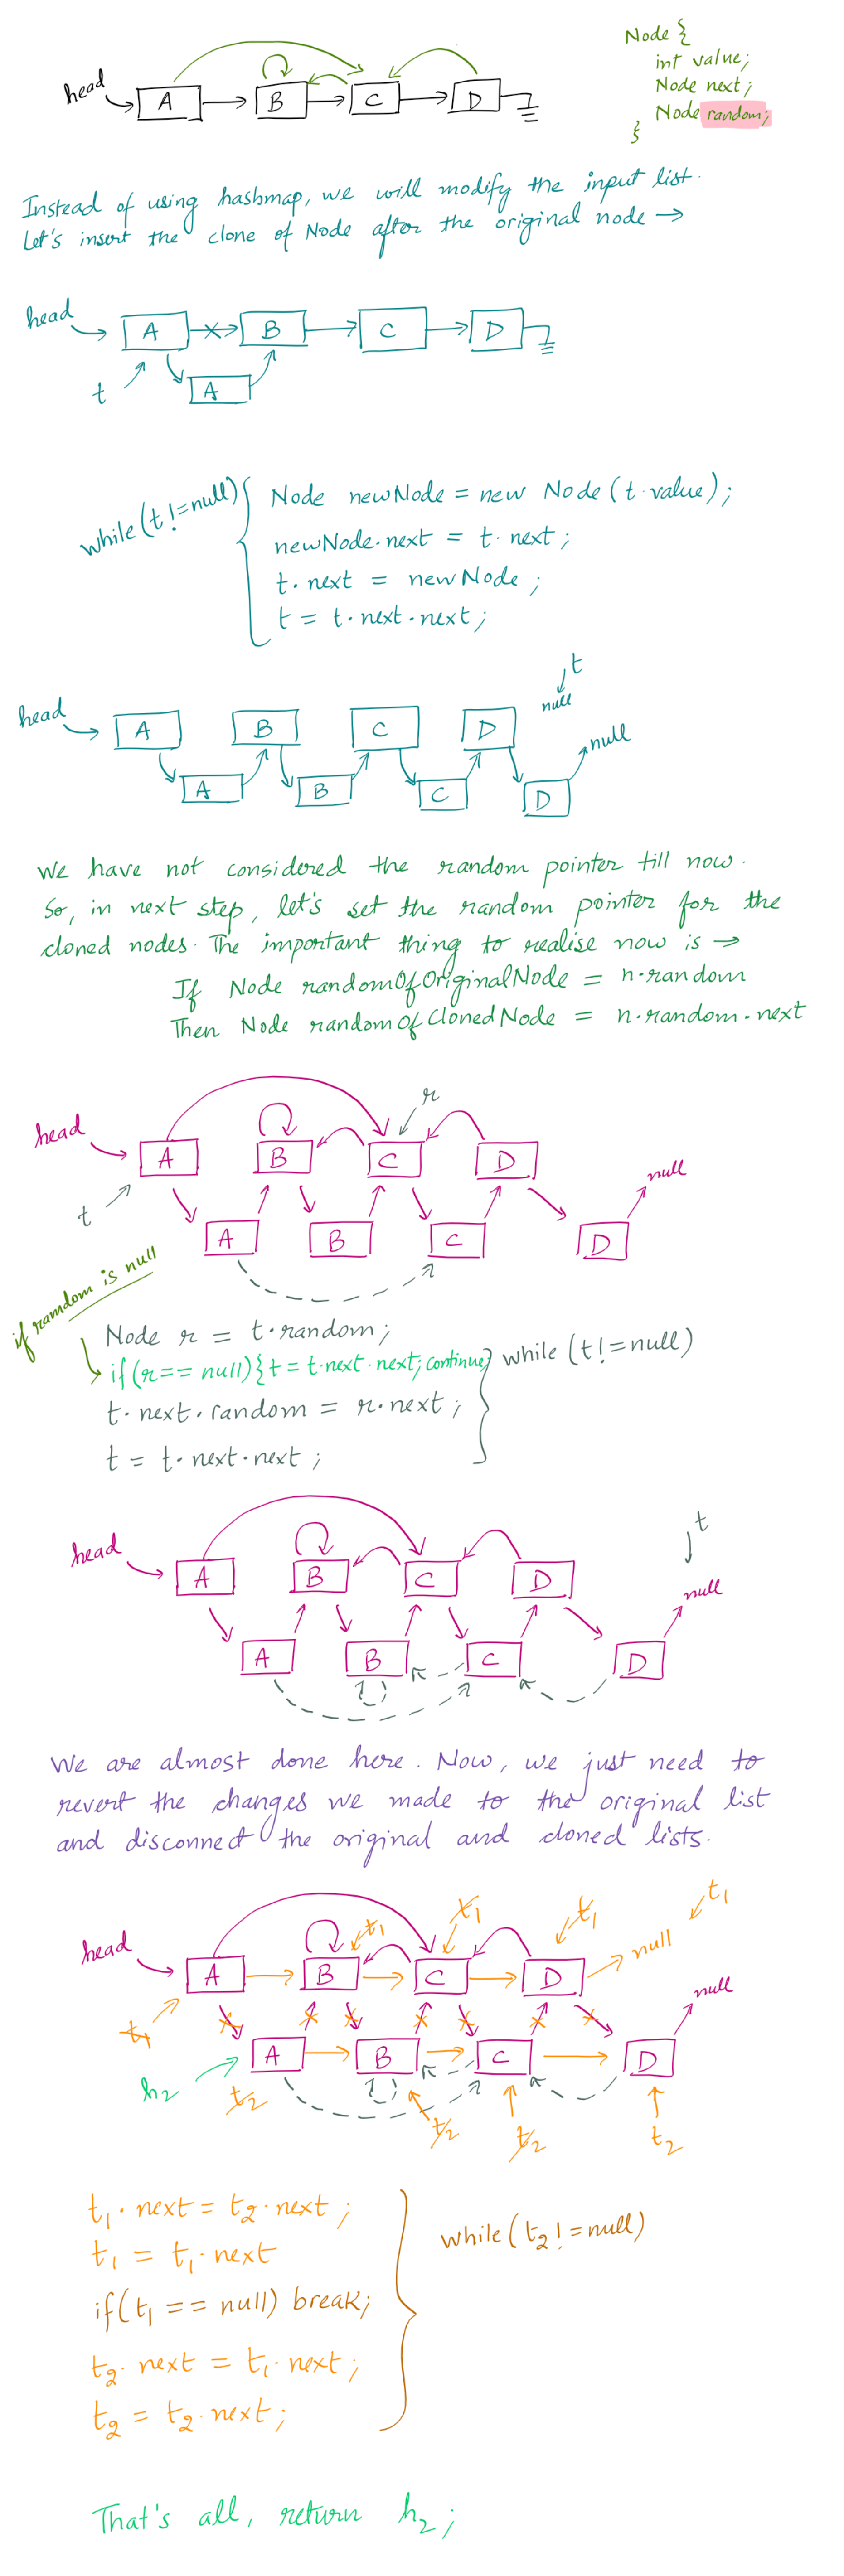 Node {
int value;
Node next;
Node random;
}
head
A B C D
Instead of using hashmap, we will modify the input list.
Let's insert the clone of Node after the original node →
head
A B C D
t
A
while(t!=null)
Node newNode = new Node(t.value);
newNode.next = t.next;
t.next = newNode;
t = t.next.next;
t
null
head
A B C D
null
A B C D
We have not considered the random pointer till now.
So, in next step, let's set the random pointer for the
cloned nodes. The important thing to realise now is →
If Node randomOfOriginalNode = n.random
Then Node randomOfClonedNode = n.random.next
r
head
A B C D
null
t
A B C D
if ramdom is null
Node r = t.random;
if(r== null){t = t.next.next; continue} while (t!=null)
t.next.random = r.next;
t = t.next.next;
t
head
A B C D
null
A B C D
We are almost done here. Now, we just need to
revert the changes we made to the original list
and disconnect the original and cloned lists.
t1 t1 t1 t1
head
A B C D
null
null
t1
A B C D
h2
t2 t2 t2 t2
t1.next = t2.next;
t1 = t1.next
while(t2!=null)
if(t1 == null) break;
t2.next = t1.next;
t2 = t2.next;
That's all, return h2;